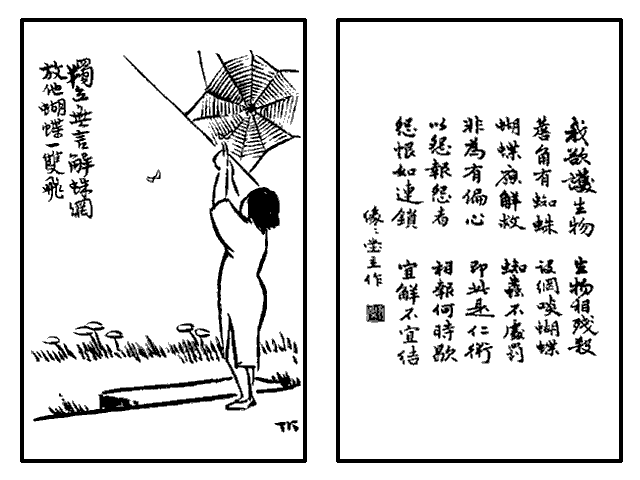 獨立無言解蛛網
放他蝴蝶一雙飛
TK
我欲護生物 生物相殘殺
簷角有蜘蛛 設網啖蝴蝶
蝴蝶應解救 蜘蟲不處罰
非為有偏心 即此是仁術
以怨報怨者 相報何時歇
怨恨如連鎖 宜解不宜結
緣〻堂主作